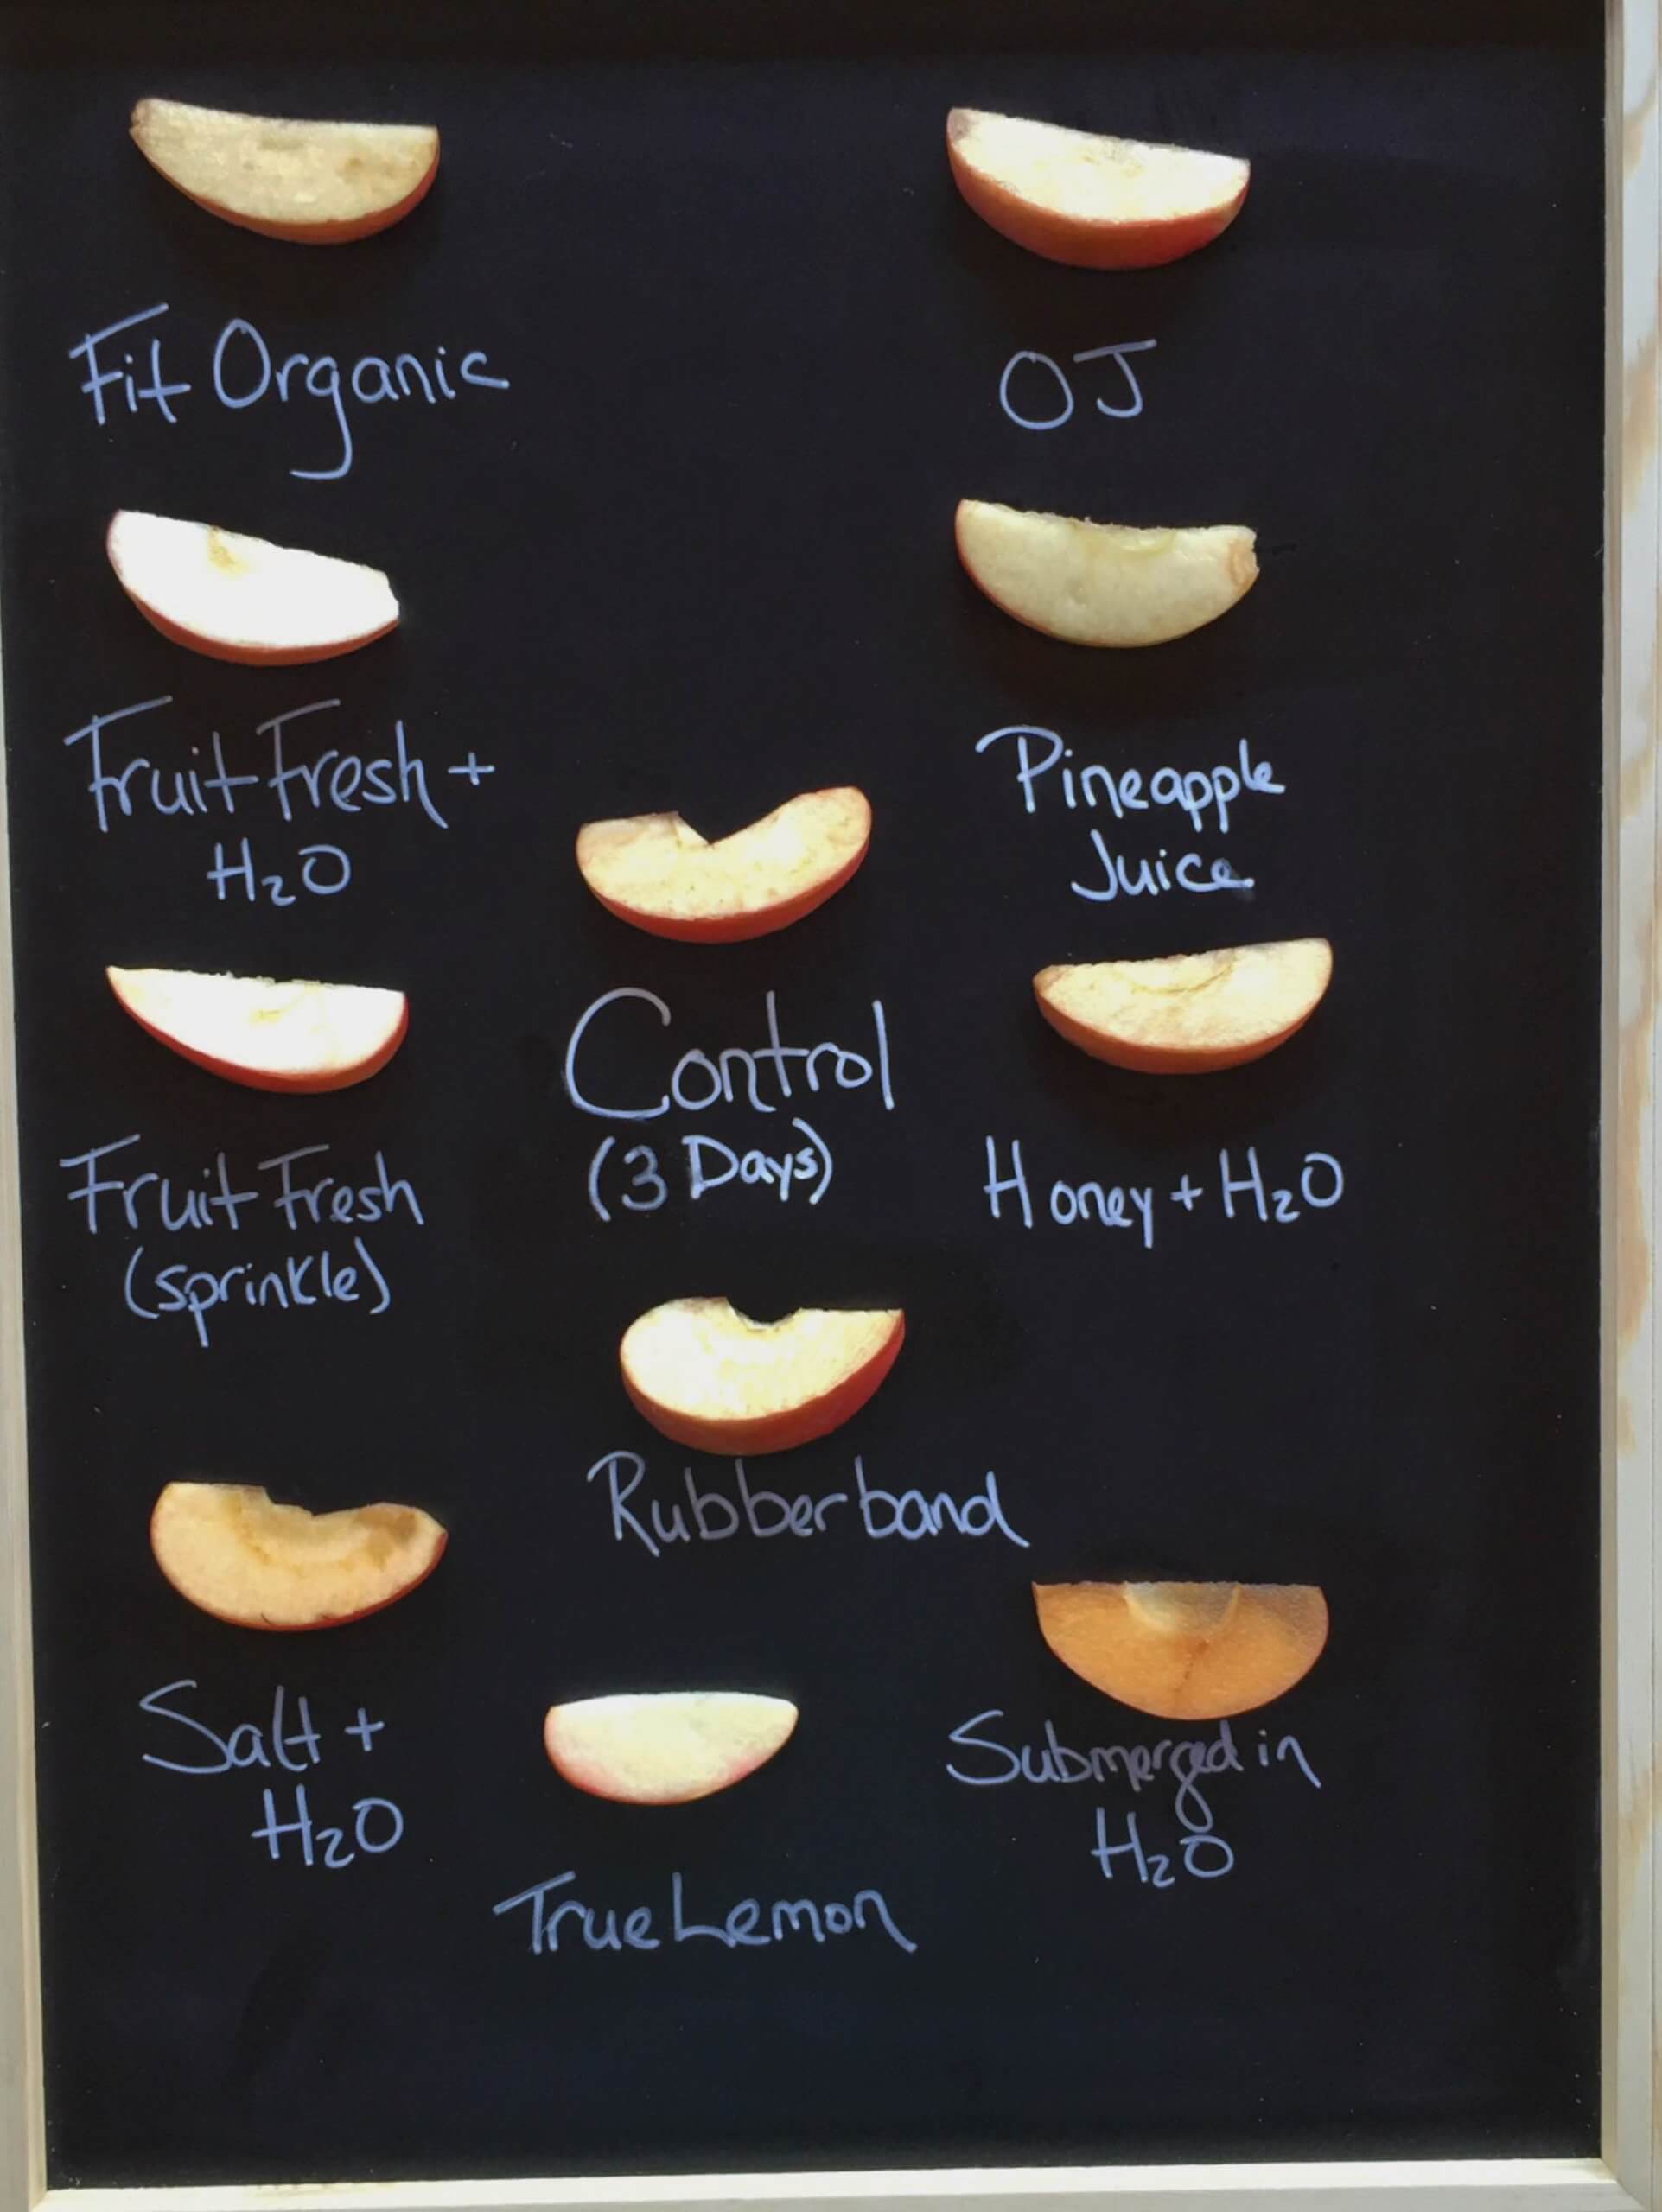 Fit Organic
OJ
Fruit Fresh +
H₂O
Pineapple
Juice
Control
(3 Days)
Fruit Fresh
(sprinkle)
Honey + H₂O
Rubberband
Salt +
H₂O
Submerged in
H₂O
True Lemon